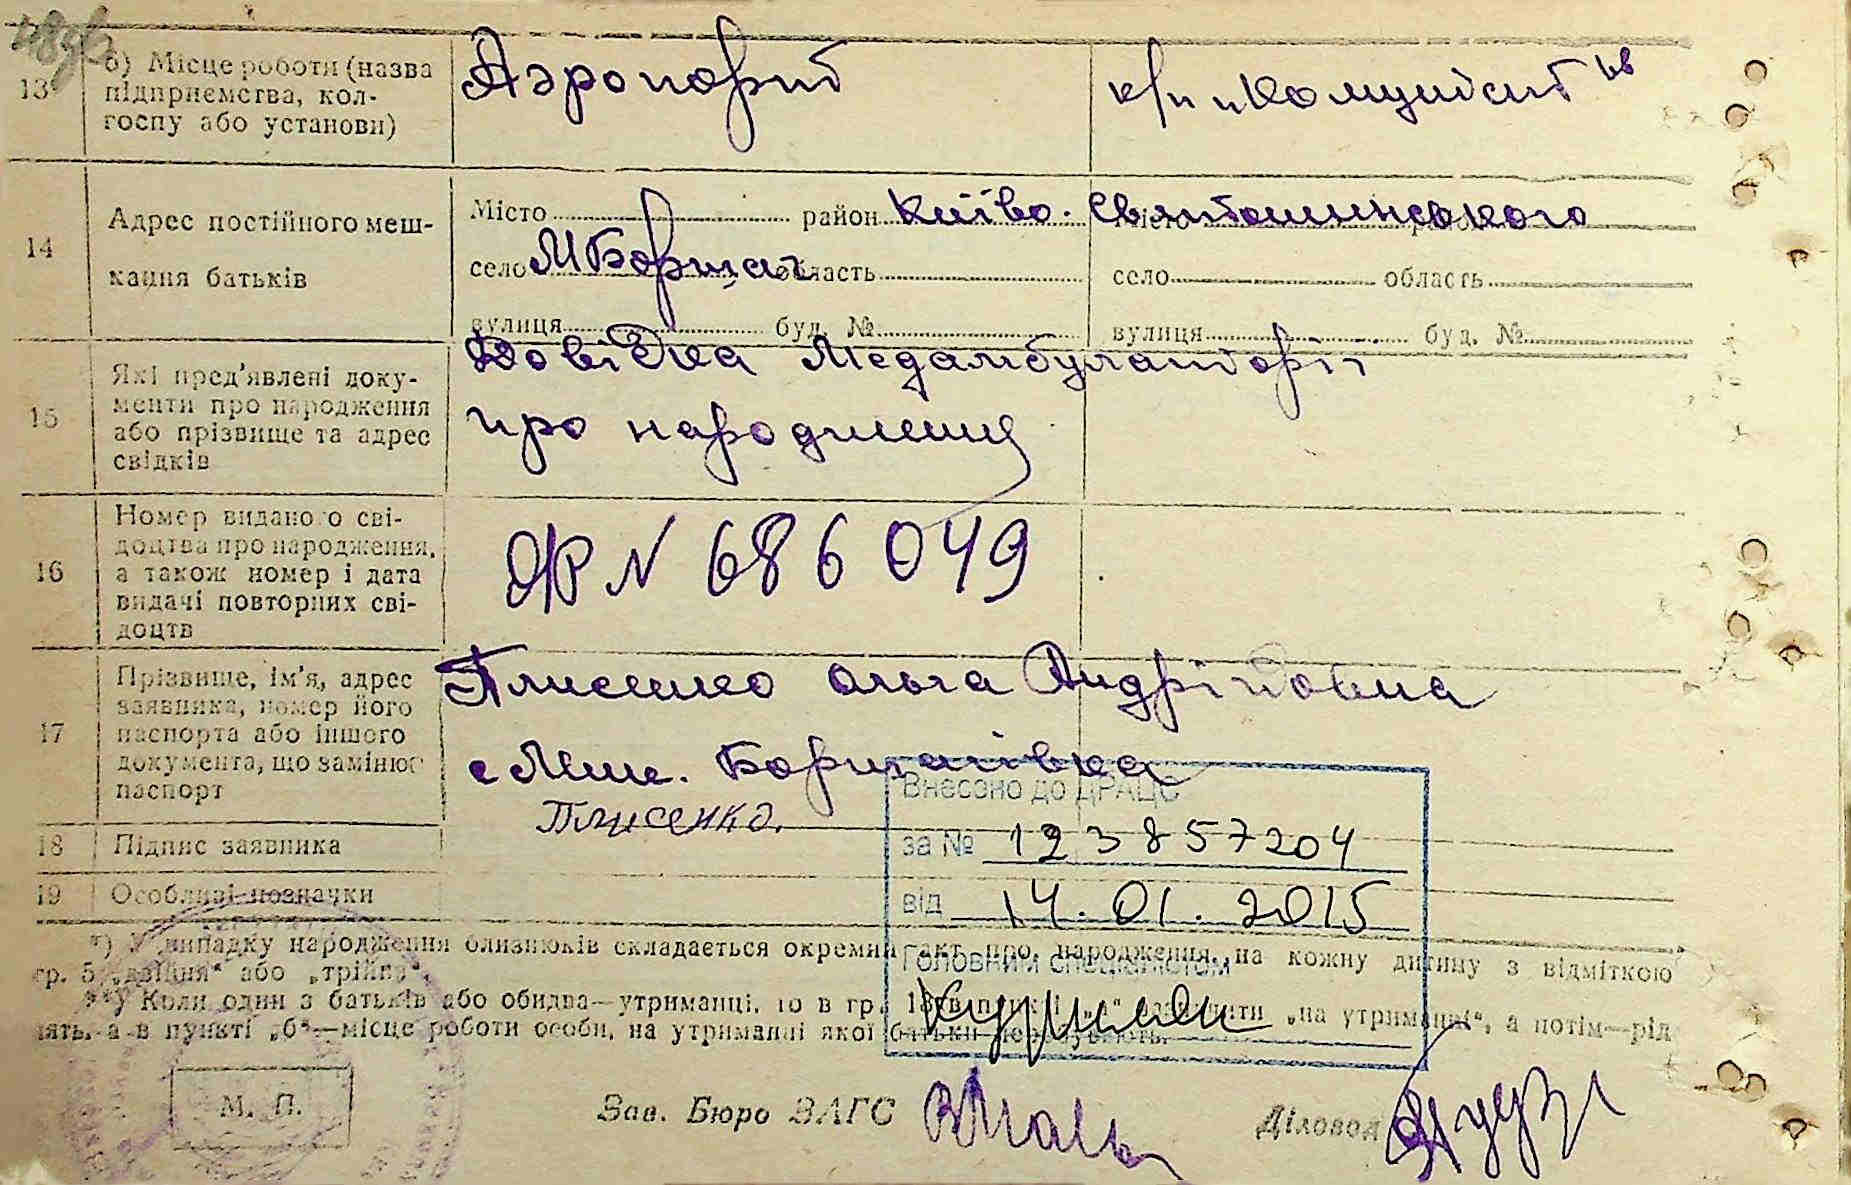 13
б) Місце роботи (назва
підприємства, кол-
госпу або установи)
Аэропорт
к/п "Комуніст"
14
Адрес постійного меш-
кання батьків
Місто район Київо-Святошинського
село М Борщаг область
вулиця буд. №
село область
вулиця буд. №
15
Які пред'явлені доку-
менти про народження
або прізвище та адрес
свідків
Довідка Медамбулаторії
про народження
16
Номер виданого сві-
доцтва про народження,
а також номер і дата
видачі повторних сві-
доцтв
N 686049
17
Прізвище, ім'я, адрес
заявника, номер його
паспорта або іншого
документа, що замінює
паспорт
Плисенко Ольга Андріївна
с Мик. Борщагівка
18
Підпис заявника
Плисенко
19
Особливі позначки
Внесено до ДРАЦС
за № 123857204
від 14.01.2015
Головним спеціалістом
*) У випадку народження близнюків складається окремий акт про народження на кожну дитину з відміткою
гр. 5 „двійня" або „трійня".
**) Коли один з батьків або обидва—утриманці, то в гр. 13 в пункті „а" „на утриманні", а потім—рід
а в пункті „б"—місце роботи особи, на утриманні якої батьки перебувають.
М. П.
Зав. Бюро ЗАГС
Діловод